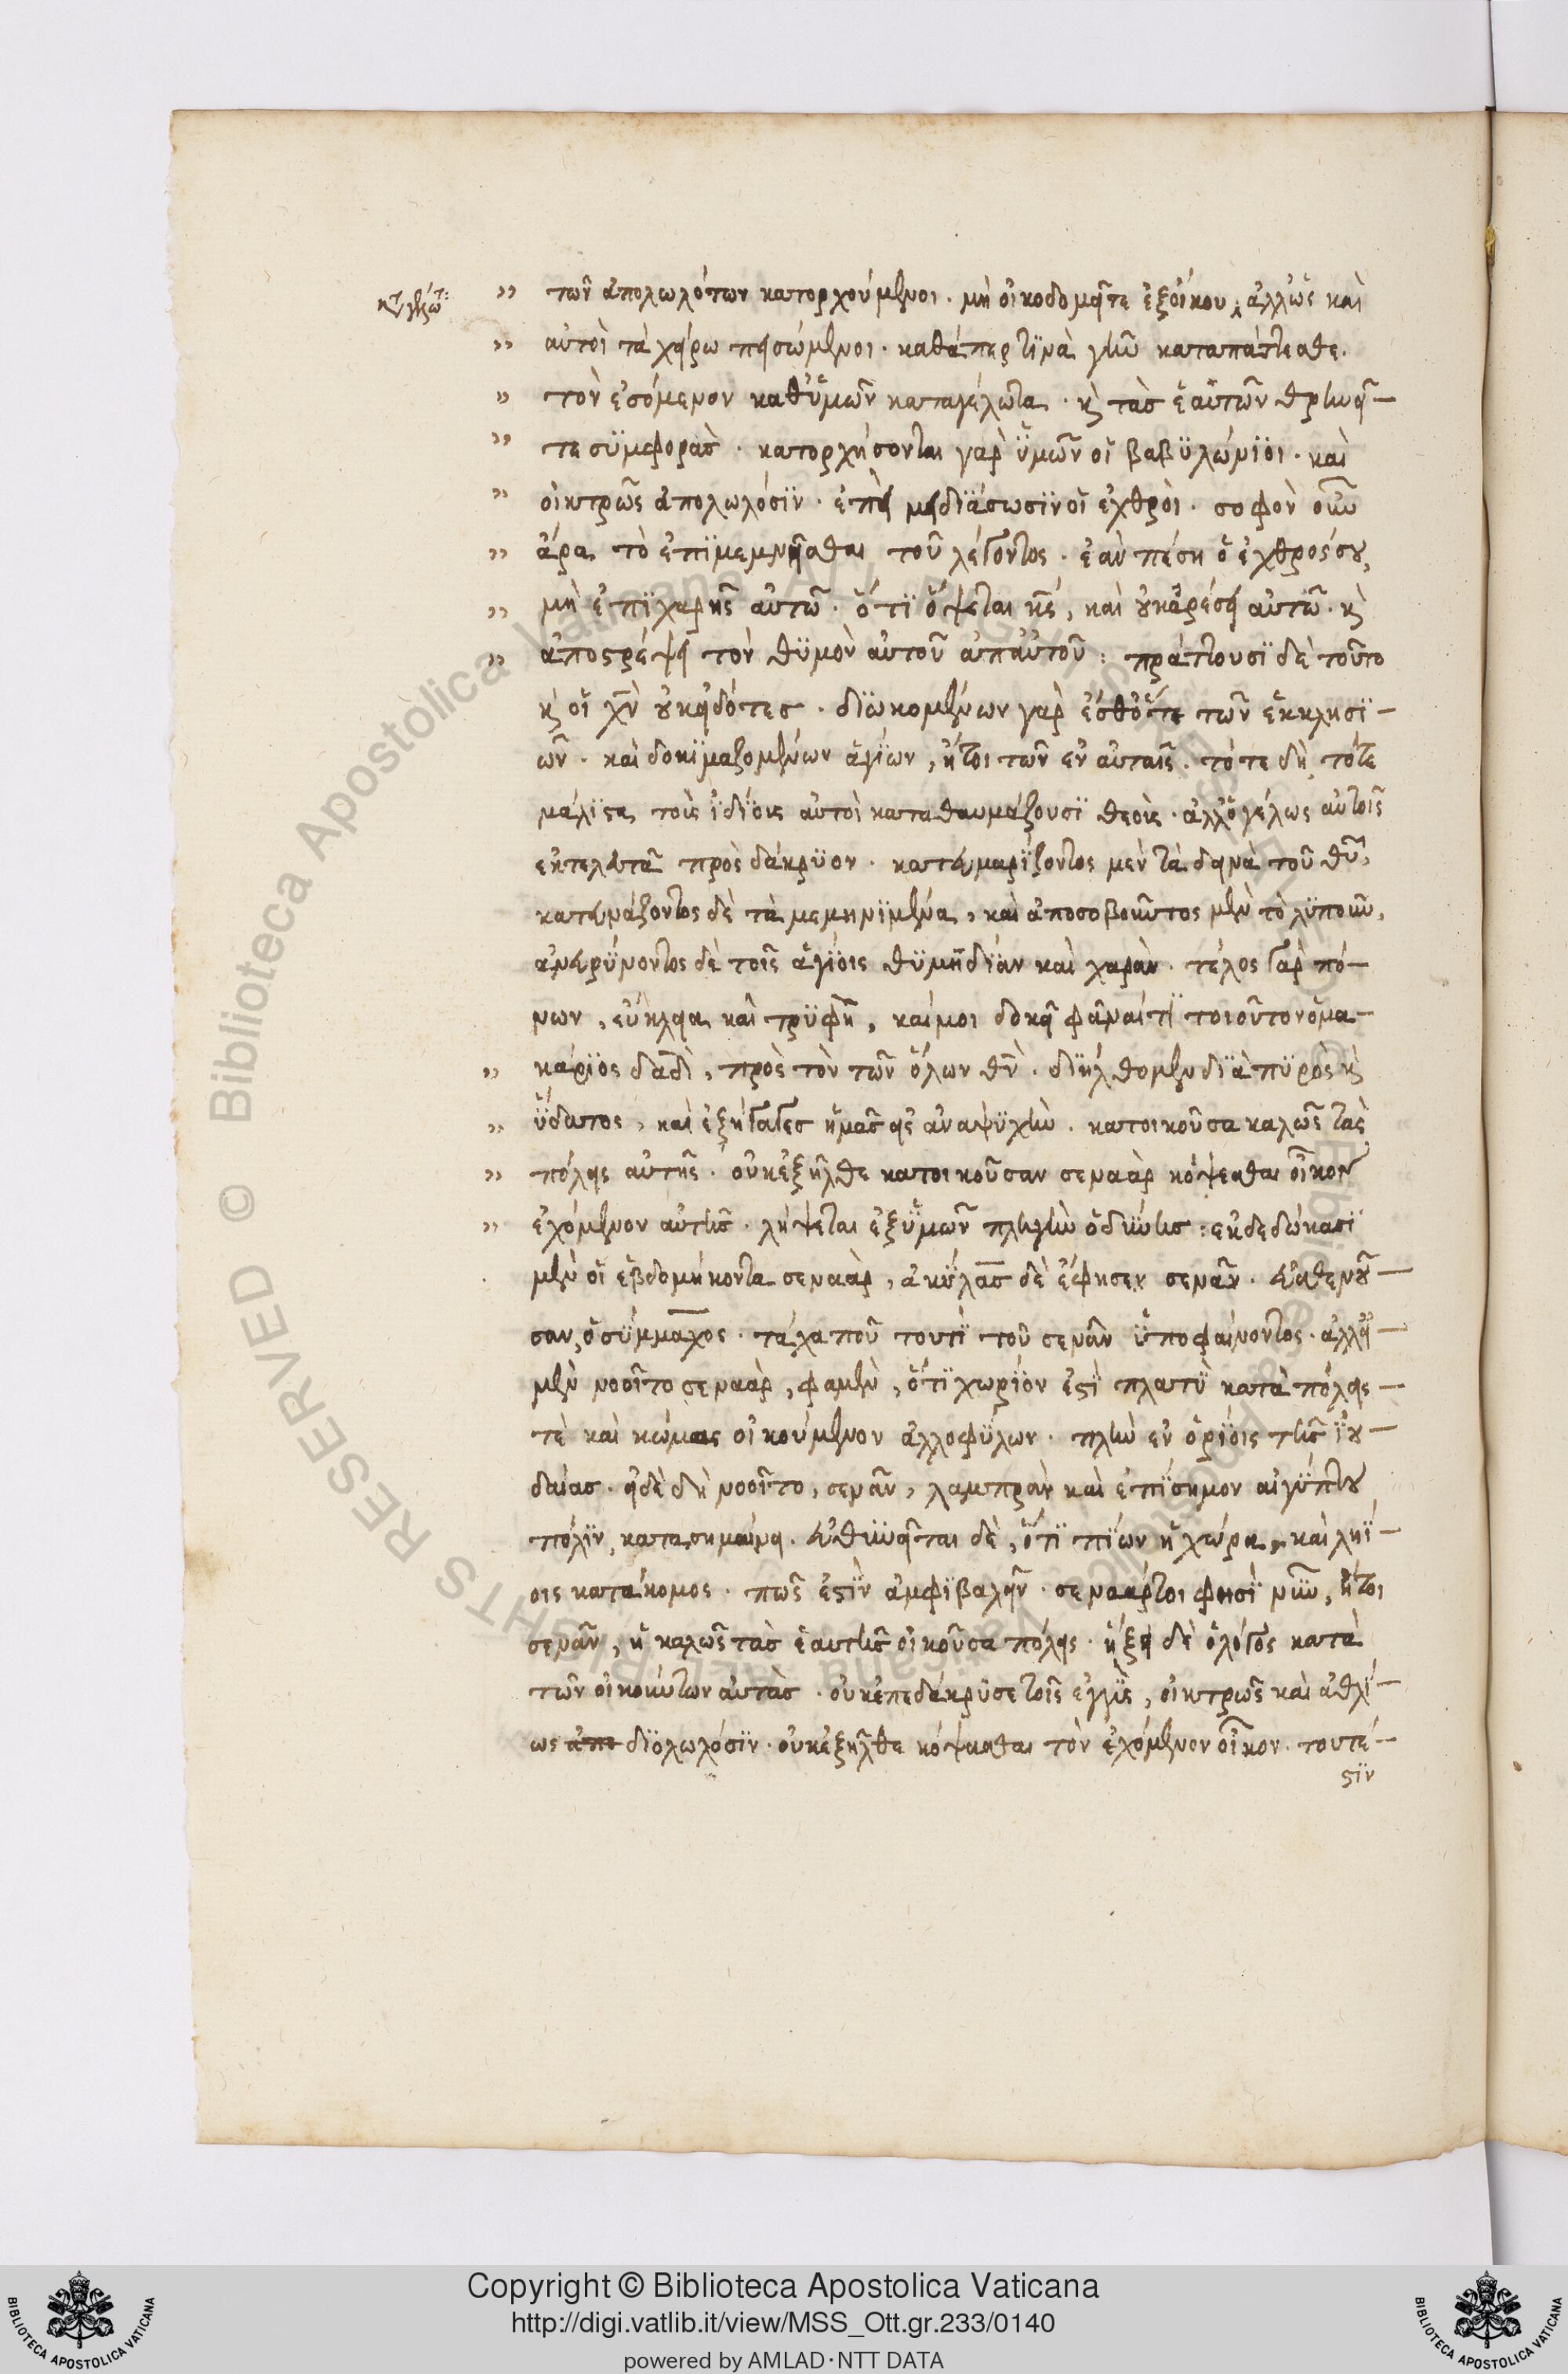 των ἀπολωλότων κατορχούμενοι . μὴ οἰκοδομεῖτε ἐξοίκου, ἀλλ' ὡς καὶ
αὐτοὶ τὰ χείρω πεισώμενοι . καθάπερ τινὰ γῆν καταπάττεσθε .
τὸν ἐσόμενον καθ' ὑμῶν καταγέλωτα . κ̀ τὰς ἑαυτῶν θρηνεῖ-
τε συμφοράς . κατορχήσονται γὰρ ὑμῶν οἱ βαβυλώνιοι . καὶ
οἰκτρῶς ἀπολωλόσιν . ἐπὶ μειδιάσωσιν οἱ ἐχθροί . σοφὸν οὖν
ἄρα τὸ ἐπιμεμνῆσθαι τοῦ λέγοντος . ἐὰν πέσῃ ὁ ἐχθρός σου,
μὴ ἐπιχαρῇς αὐτῷ . ὅτι ὄψεται κς, καὶ οὐκ ἀρέσει αὐτῷ . κ̀
ἀποστρέψει τὸν θυμὸν αὐτοῦ ἀπ' αὐτοῦ : πράττουσι δὲ τοῦτο
κ̀ οἱ χν οὐκ εἰδότες . διωκομένων γὰρ ἐσθότε τῶν ἐκκλησι-
ῶν . καὶ δοκιμαζομένων ἁγίων, ἤτοι τῶν ἐν αὐταῖς . τότε δὴ τότε
μάλιστα τοῖς ἰδίοις αὐτοὶ καταθαυμάζουσι θεοῖς . ἀλλ' ὁ γέλως αὐτοῖς
ἐκτελευτᾷ πρὸς δάκρυον . κατευμαρίζοντος μὲν τὰ δεινὰ τοῦ θυ,
κατευνάζοντος δὲ τὰ μεμηνιμένα, καὶ ἀποσοβοῦντος μὲν τὸ λυποῦν,
ἀνευρύνοντος δὲ τοῖς ἁγίοις θυμηδίαν καὶ χαράν . τέλος γὰρ πό-
νων, εὔκλεια καὶ τρυφή, καί μοι δοκεῖ φάναι τι τοιοῦτον ὁ μα-
κάριος δαδ, πρὸς τὸν τῶν ὅλων θν . διήλθομεν διὰ πυρὸς κ̀
ὕδατος, καὶ ἐξήγαγες ἡμᾶς εἰς ἀναψυχήν . κατοικοῦσα καλῶς τὰς
πόλεις αὐτῆς . οὐκ ἐξῆλθε κατοικοῦσαν σεναὰρ κόψεσθαι οἶκον
ἐχόμενον αὐτῆς . λήψεται ἐξ ὑμῶν πληγὴν ὀδύνης : ἐκδεδώκασι
μὲν οἱ ἑβδομήκοντα σεναάρ, ἀκύλας δὲ ἔφησεν σενάν . εὐθηνοῦ-
σαν, ὁ σύμμαχος . τάχα που τουτὶ τοῦ σενὰν ὑποφαίνοντος . ἀλλ' εἰ
μὲν νοοῖτο σεναάρ, φαμὲν, ὅτι χωρίον ἐστὶ πλατὺ κατὰ πόλεις
τὲ καὶ κώμας οἰκούμενον ἀλλοφύλων . πλὴν ἐν ὁρίοις τῆς ἰου-
δαίας . εἰ δὲ δὴ νοοῖτο, σενάν, λαμπρὰν καὶ ἐπίσημον αἰγύπτου
πόλιν, κατασημαίνει . εὐθηνεῖται δὲ, ὅτι πίων ἡ χώρα, καὶ ληΐ-
οις κατάκομος . πῶς ἐστὶν ἀμφιβαλεῖν . σεναάρ τοι φησὶ νῦν, ἤτοι
σενάν, ἡ καλῶς τὰς ἑαυτῆς οἰκοῦσα πόλεις . ἥξει δὲ ὁ λόγος κατὰ
τῶν οἰκούντων αὐτάς . οὐκ ἐπεδάκρυσε τοῖς ἐγγὺς, οἰκτρῶς καὶ ἀθλί-
ως ἀπο διολωλόσιν . οὐκ ἐξῆλθε κόψασθαι τὸν ἐχόμενον οἶκον . τουτέ-
στιν